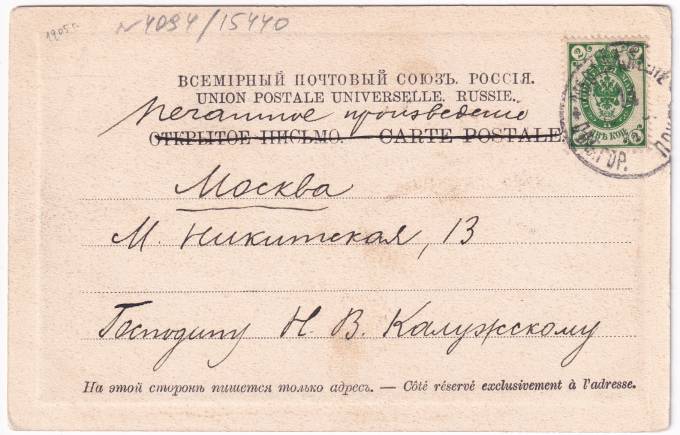 1905 г.
№4094/15440
ВСЕМІРНЫЙ ПОЧТОВЫЙ СОЮЗЪ. РОССІЯ.
UNION POSTALE UNIVERSELLE. RUSSIE.
Печатное произведение
ОТКРЫТОЕ ПИСЬМО. — CARTE POSTALE.
Москва
М. Никитская, 13
Господину Н. В. Калужскому
На этой сторонѣ пишется только адресъ. — Côté réservé exclusivement à l'adresse.
2 2